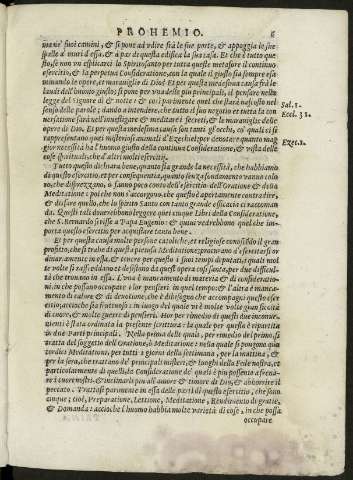 PROHEMIO.
mane' suoi camini, & si pone ad vdire frà le sue porte, & appoggia le sue
spalle a' muri d'essa, & a par di questa edifica la sua casa. Et che è tutto que
sto, se non vn esplicarci lo Spiritosanto per tutte queste metafore il continuo
esercitio, & la perpetua Consideratione, con la quale il giusto sia sempre esa
minando le opere, et marauiglie di Dio? Et per questa medesima causa frà le
laudi dell'huomo giusto, si pone per vna delle piu principali, il pensare nella
legge del Signore dì & notte: & così parimente
Sal. 1.
Eccl. 39.
operе di Dio. Et per questa medesima causa son tanti gli occhi, co' quali ci si
rappresentano quei misteriosi animali d'Ezechiel: per denotare quanto mag
Ezec. 1.
gior necessità ha l'huomo giusto della continua Consideratione, & vista delle
cose spirituali, che d'altri molti esercitij.
Tutto questo dichiara bene, quanto sia grande la necessità, che habbiamo
di questo esercitio, et per conseguentia, quanto senza fondamento vanno colo
ro, che disprezzano, o fanno poco conto dell'esercitio dell'Oratione & della
Meditatione: poi che non s'accorgono, che questo è apertamente contradire,
& disfare quello, che lo spirito Santo con tanto grande efficacia ci raccoman
da. Questi tali dourebbono leggere quei cinque Libri della Consideratione,
che S. Bernardo scrisse a Papa Eugenio: & quiui vedrebbono quel che im-
porta questo esercitio per acquistare tanto bene.
Et per questa causa molte persone catoliche, et religiose conoscendo il gran
profitto, che si trahe di questa pietosa Meditatione; procurano d'esercitarsi or
dinariamente in essa, & tenere per questo i suoi tempi deputati, a' quali mol
te volte si raffreddano, et desistono da questa opera così santa, per due difficul
tà che trouano in essa. L'vna è mancamento di materia & di consideratio-
ni in che possano occupare i lor pensieri in quel tempo; & l'altra è manca-
mento di calore & di deuotione, che è bisogno che accompagni questo eser-
citio, accioche sia fruttuoso: in luogo del quale vi è molte volte gran siccità
di cuore, & molte guerre di pensieri. Hor per rimedio di questi due inconue-
nienti è stata ordinata la presente scrittura: la quale per questo è ripartita
in due Parti principali. Nella prima delle quali, per rimedio del primo, si
tratta del soggetto dell'Oratione, ò Meditatione: & nella quale si pongono quat
tordici Meditationi, per tutti i giorni della settimana, per la mattina, &
per la sera, che trattano de' principali misterij, & luoghi della Fede nostra, et
particolarmente di quelli, la Consideratione de' quali è piu possente a frena-
re i cuori nostri, & incitarli piu all'amore & timore di Dio, & abhorrire il
peccato. Trattasi parimente in essa delle parti di questo esercitio, che sono
cinque; cioè, Preparatione, Lettione, Meditatione, Rendimento di gratie,
& Domanda: accioche l'huomo habbia molte varietà di cose, in che possa
occupare